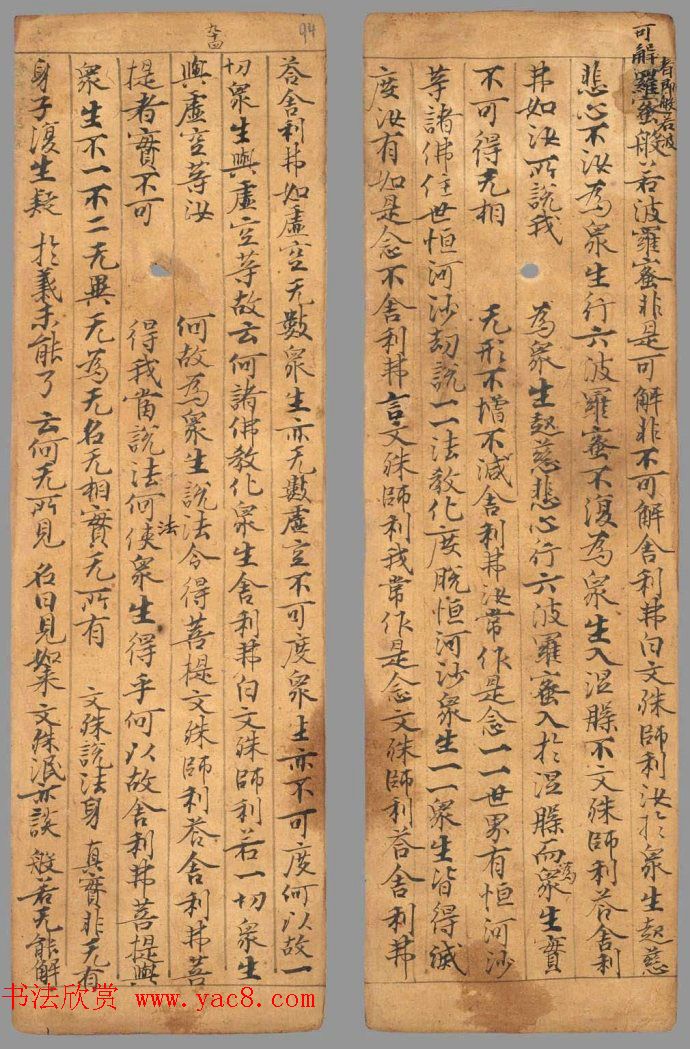 可解羅蜜般若波羅蜜非是可解非不可解舍利弗白文殊師利汝於衆生起慈
者即般若波
悲心不汝為衆生行六波羅蜜不復為衆生入涅槃不文殊師利荅舍利
弗如汝所說我 為衆生起慈悲心行六波羅蜜入於涅槃而衆生實
為
不可得无相 无形不增不減舍利弗汝常作是念一一世界有恒河沙
等諸佛住世恒河沙劫說一一法教化度脫恒河沙衆生一一衆生皆得滅
度汝有如是念不舍利弗言文殊師利我常作是念文殊師利荅舍利弗
九十四
94
荅舍利弗如虛空无數衆生亦无數虛空不可度衆生亦不可度何以故一
切衆生與虛空等故云何諸佛教化衆生舍利弗白文殊師利若一切衆生
與虛空等汝 何故為衆生說法令得菩提文殊師利荅舍利弗菩
提者實不可 得我當說法何使衆生得乎何以故舍利弗菩提與
法
衆生不一不二无異无為无名无相實无所有 文殊說法身 真實非无有
身子復生疑 於義未能了 云何无所見 名曰見如来 文殊泯亦談 般若无能解
书法欣赏 www.yac8.com